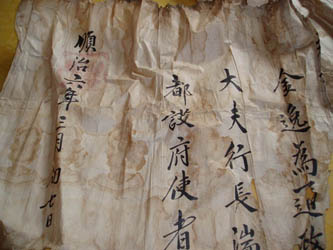 金逸為通政
大夫行長湍
都護府使者
順治六年三月初七日